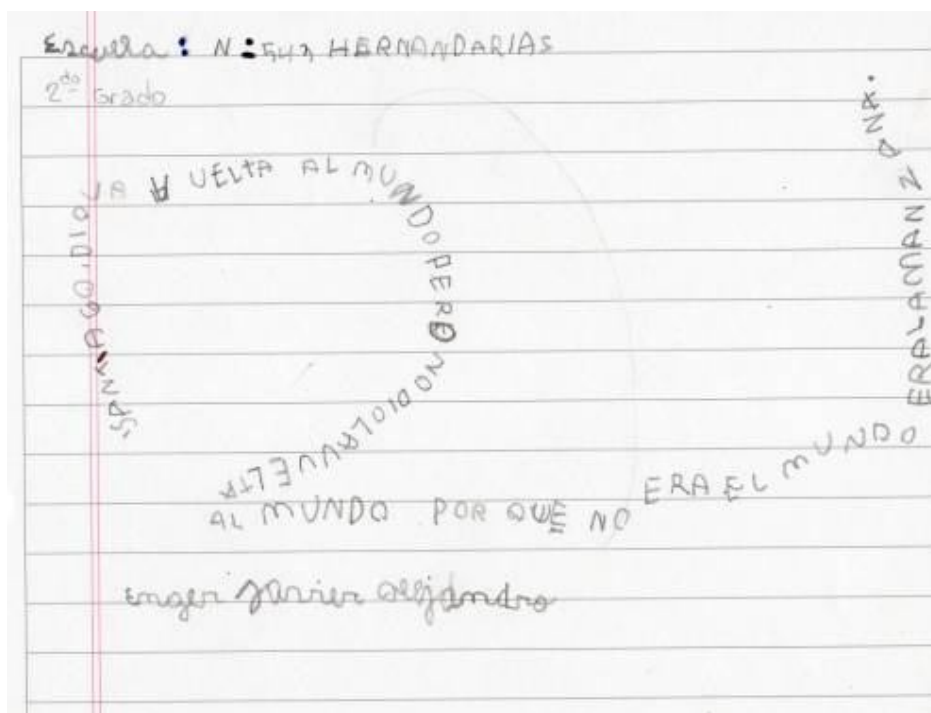 Escuela: N: 543 HERNANDARIAS
2do Grado
SANTIAGO DIO LA VUELTA AL MUNDO PERO NO DIO LA VUELTA
AL MUNDO POR QUE NO ERA EL MUNDO ERA LA MANZANA.
Enger Javier Alejandro